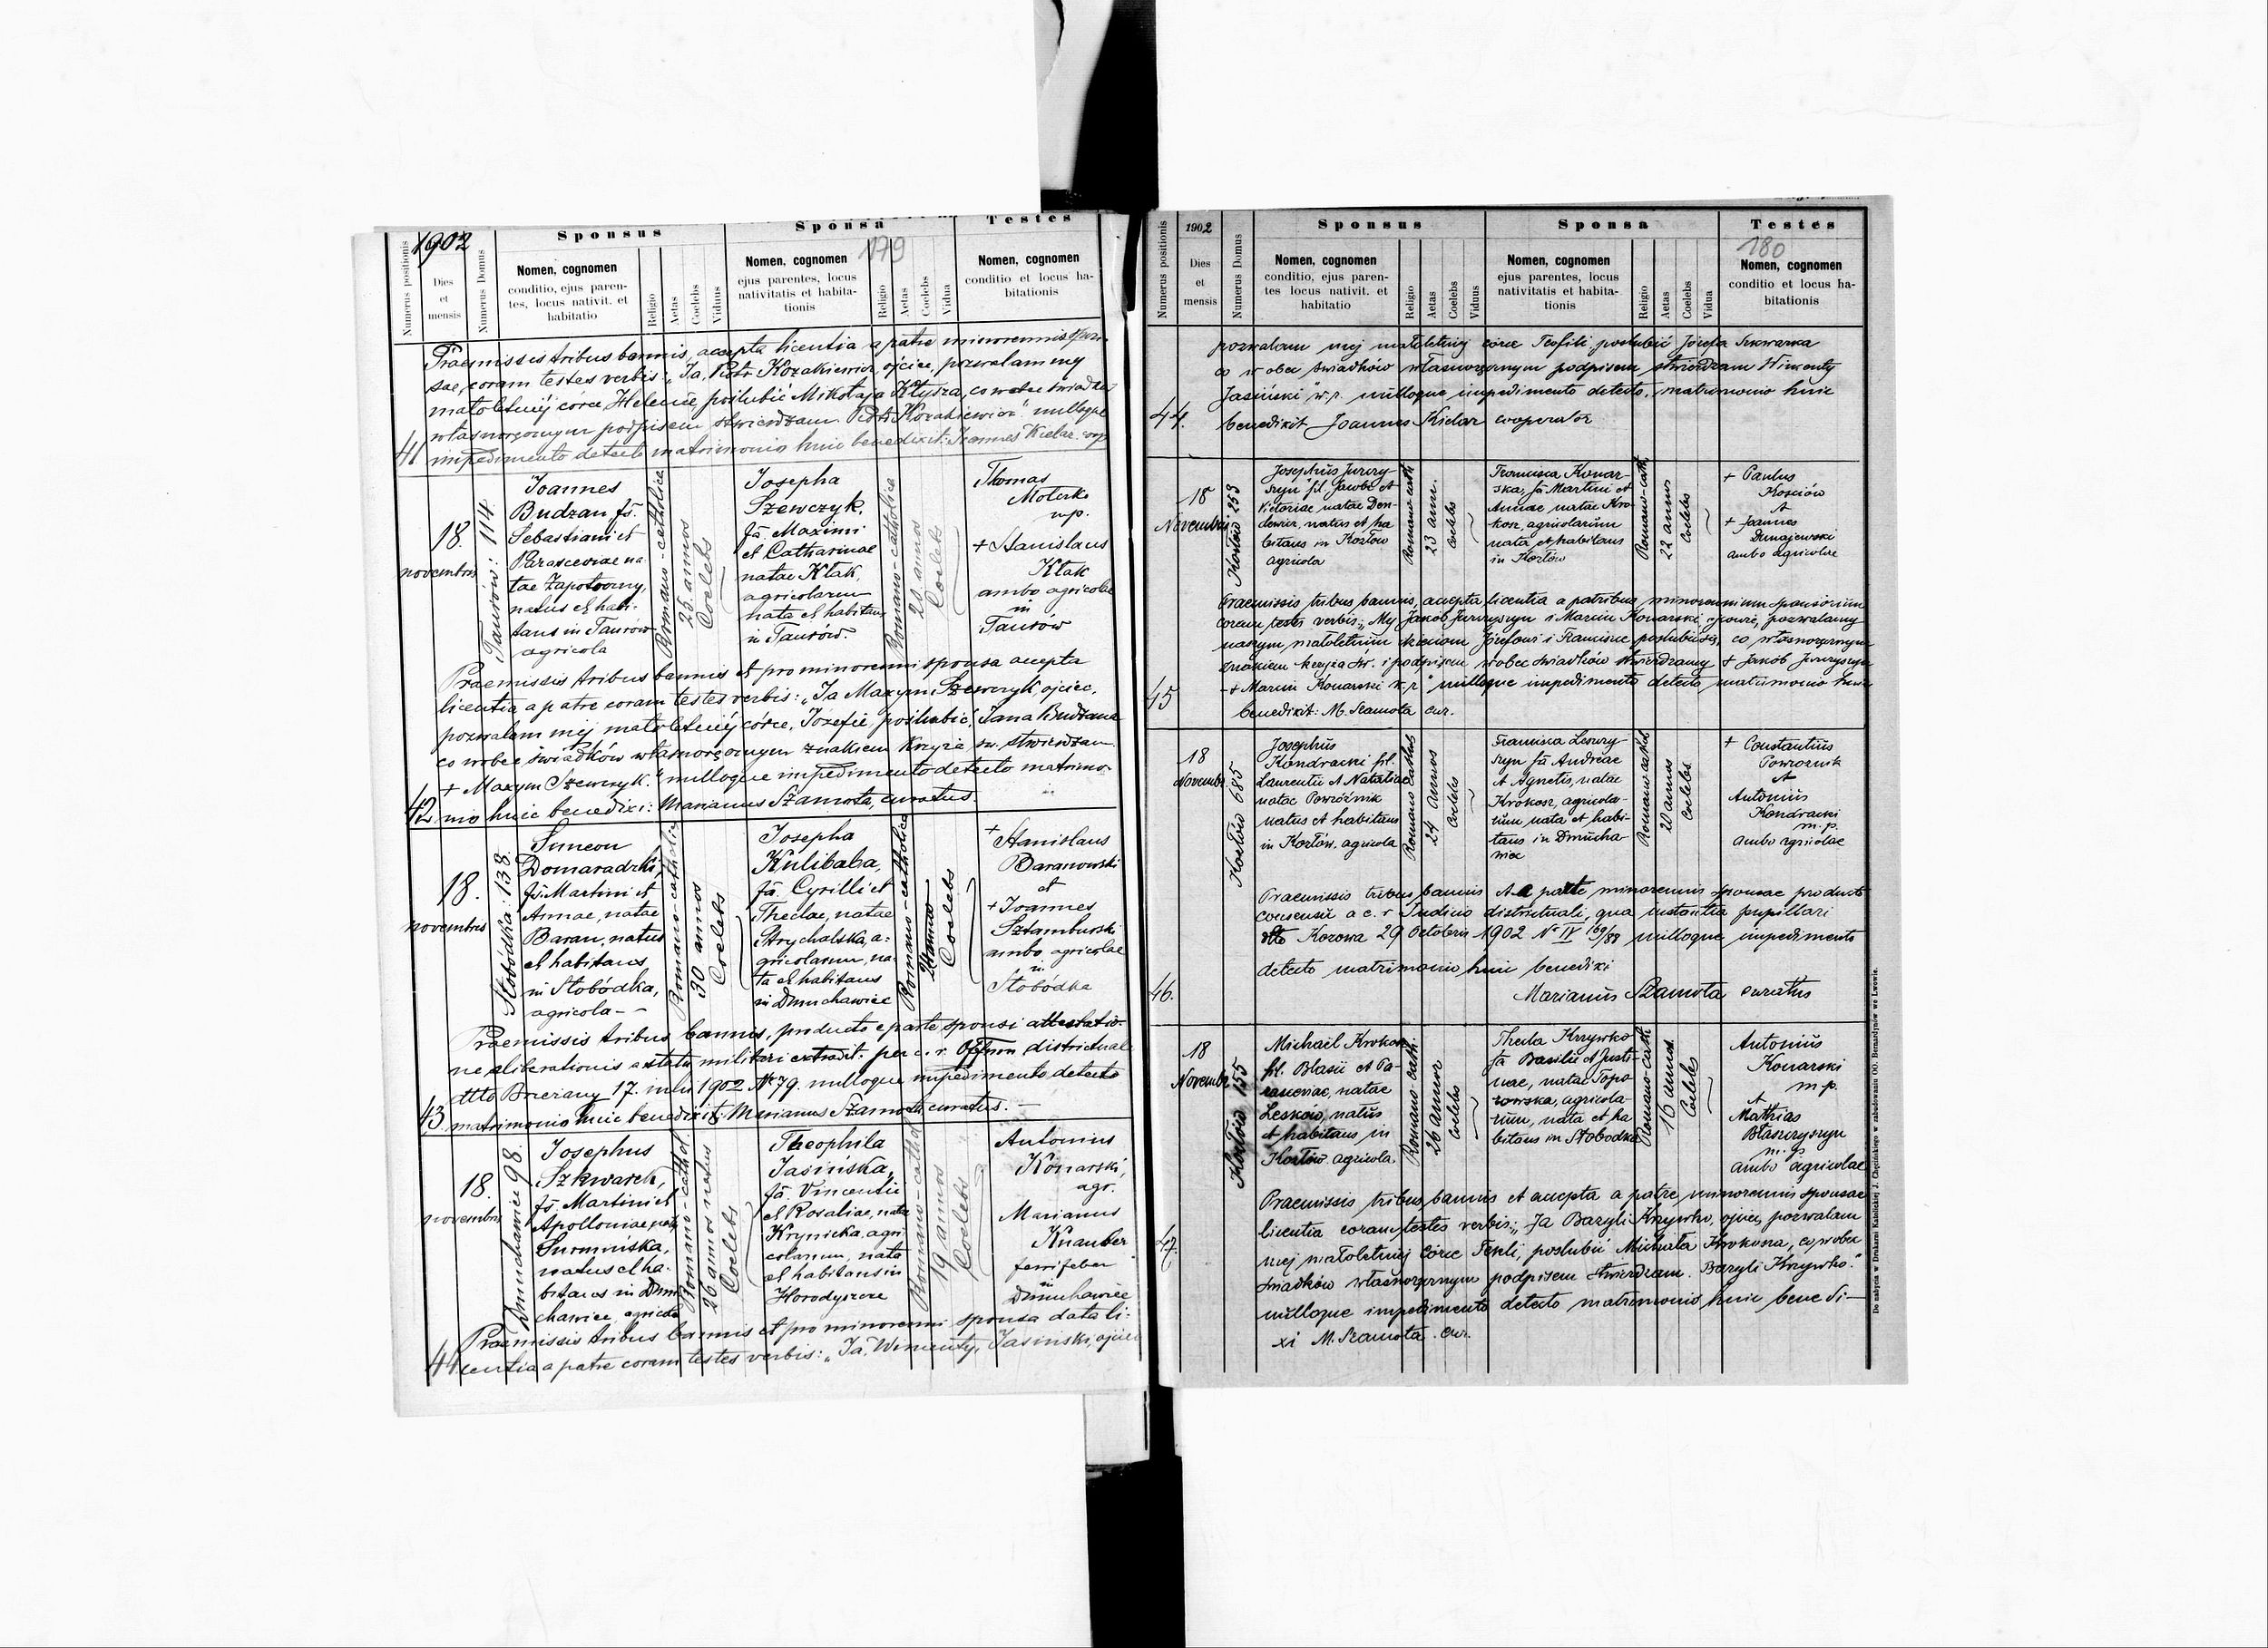 1902
179
Numerus positionis
Dies
et
mensis
Numerus Domus
Sponsus
Nomen, cognomen
conditio, ejus paren-
tes, locus nativit. et
habitatio
Religio
Aetas
Coelebs
Viduus
Sponsa
Nomen, cognomen
ejus parentes, locus
nativitatis et habita-
tionis
Religio
Aetas
Coelebs
Vidua
Testes
Nomen, cognomen
conditio et locus ha-
bitationis
Praemissis tribus bannis, accepta licentia a patre minorennis spon-
sae, coram testes verbis: „Ja, Piotr Kozakiewicz, ojciec, pozwalam mej
małoletniéj córce Helenie poślubić Mikołaja Kłysza, co wobec świadków
własnoręcznym podpisem stwierdzam Piotr Kozakiewicz" nulloque
41 impedimento detecto matrimonio huic benedixit: Joannes Kielar coop.
18.
novembris
Taurów: 114.
Joannes
Budzan fs.
Sebastiani et
Parasceviae na
tae Zapotoczny,
natus et habi-
tans in Taurów
agricola
Romano-catholica
25 annos
Coelebs
Josepha
Szewczyk,
fa. Maximi
et Catharinae
natae Kłak,
agricolarum
nata et habitans
in Taurów.
Romano-catholica
annos
Coelebs
Thomas
mp.
+ Stanislaus
Kłak
ambo agricolae
in
Taurów
Praemissis tribus bannis et pro minorenni sponsa accepta
licentia a patre coram testes verbis: „Ja Maxym Szewczyk ojciec,
pozwalam mej małoletniéj córce, Józefie, poślubić, Jana Budzana
co wobec świadków własnoręcznym znakiem krzyża św. stwierdzam
+ Maxym Szewczyk." nulloque impedimento detecto matrimo-
42 nio huic benedixi: Marianus Szamota, curatus.
18.
novembris
Słobódka: 138.
Simeon
Domaradzki,
fs. Martini et
Annae, natae
Baran, natus
et habitans
in Słobódka,
agricola--
Romano-catholica
30 annos
Coelebs
Josepha
Kulibaba,
fa. Cyrilli et
Theclae, natae
Strychalska, a-
gricolarum, na-
ta et habitans
in Dmuchawiec
Romano-catholica
24 annos
Coelebs
+ Stanislaus
Baranowski
et
+ Joannes
Sztamburski
ambo agricolae
in
Słobódka
Praemissis tribus bannis, producto e parte sponsi attestatio-
ne liberationis a statu militari extradit. per c. r. Offium districtuale
dtto Brzeżany 17. 1902 № 79. nulloque impedimento detecto
43. matrimonio huic benedixit: Marianus Szamota curatus.-
18.
novembris
Dmuchawiec 98.
Josephus
Szkwarek,
fs. Martini et
Apolloniae, natae
natus et ha-
bitans in Dmu
chawiec, agricola
Romano-cathol.
26 annos natus
Coelebs
Theophila
Jasińska,
fa. Vincentii
et Rosaliae, natae
Krynicka, agri
colarum, nata
et habitans in
Horodyszcze
Romano-cathol
19 annos
Coelebs
Antonius
Konarski,
agr.
Marianus
Knauber
ferrifaber
in
Dmuchawiec
Praemissis tribus bannis et pro minorenni sponsa data li-
44 centia a patre coram testes verbis: „Ja, Wincenty, Jasiński, ojciec
180
Numerus positionis
1902
Dies
et
mensis
Numerus Domus
Sponsus
Nomen, cognomen
conditio, ejus paren-
tes locus nativit. et
habitatio
Religio
Aetas
Coelebs
Viduus
Sponsa
Nomen, cognomen
ejus parentes, locus
nativitatis et habita-
tionis
Religio
Aetas
Coelebs
Vidua
Testes
Nomen, cognomen
conditio et locus ha-
bitationis
pozwalam mej małoletniej córce Teofili poślubić Józefa Szkwarka
co w obec świadków własnoręcznym podpisem stwierdzam Wincenty
Jasiński" w.r. nulloque impedimento detecto, matrimonio huic
44. benedixit Joannes Kielar cooperator
18
Novembris
Kozłów 253
Josephus Jurczy-
szyn fil. Jacobi et
Victoriae natae Den-
dewicz, natus et ha
bitans in Kozłów
agricola
Romano-cath
23 ann.
Coelebs
Francisca Konar-
ska, fa Martini et
Annae natae Kro-
kosz, agricolarum
nata et habitans
in Kozłów
Romano-cath.
22 annos
Coelebs
+ Paulus
Kosciów
et
+ Joannes
Dunajewski
ambo agricolae
Praemissis tribus bannis, accepta licentia a patribus minorennium sponsorum
coram testes verbis: „My Jakób Jurczyszyn i Marcin Konarski ojcowie, pozwalamy
naszym małoletnim dzieciom Józefowi i Franciszce poślubić się, co własnoręcznym
znakiem krzyża św. i podpisem wobec świadków stwierdzamy + Jakób Jurczyszyn
45 + Marcin Konarski w.r." nulloque impedimento detecto matrimonio huic
benedixit: M. Szamota cur.
18
Novembr.
Kozłów 685
Josephus
Kondracki fil.
Laurentii et Nataliae
natae Powróźnik
natus et habitans
in Kozłów. agricola
Romano cathol
24 annos
Coelebs
Francisca Leszczy-
szyn fa Andreae
et Agnetis, natae
Krokosz, agricola-
rum nata et habi-
tans in Dmucha-
wiec
Romano cathol
20 annos
Coelebs
+ Constantius
Powroznik
et
Antonius
Kondracki
m.p.
ambo agricolae
Praemissis tribus bannis et a parte minorennis sponsae producto
consensu a c. r Judicio districtuali, qua instantia pupillari
dtto Kozowa 29 Octobris 1902 № IV 69/88 nulloque impedimento
detecto matrimonio huic benedixi
46. Marianus Szamota curatus
18
Novembr
Kozłów 155
Michael Krokosz
fil. Blasii et Pa-
rasceviae, natae
Lesków, natus
et habitans in
Kozłów agricola.
Romano cath.
26 annos
Coelebs
Thecla Krzywko
fa Basilii et Justi-
nae, natae Topo-
rowska, agricola-
rum, nata et ha
bitans in Słobodka
Romano-cath
16 annos.
Coelebs
Antonius
Konarski
m.p.
et
Mathias
Błaszczyszyn
m.p
ambo agricolae
Praemissis tribus bannis et accepta a patre minorennis sponsae
licentia coram testes verbis: „Ja Bazyli Krzywko, ojciec, pozwalam
47. mej małoletniej córce Tekli, poślubić Michała Krokosza, co wobec
świadków własnoręcznym podpisem stwierdzam. Bazyli Krzywko."
nulloque impedimento detecto matrimonio huic benedi-
xi M. Szamota. cur.
Do nabycia w Drukarni Katolickiej J. Chęcińskiego w zabudowaniu OO. Bernardynów we Lwowie.